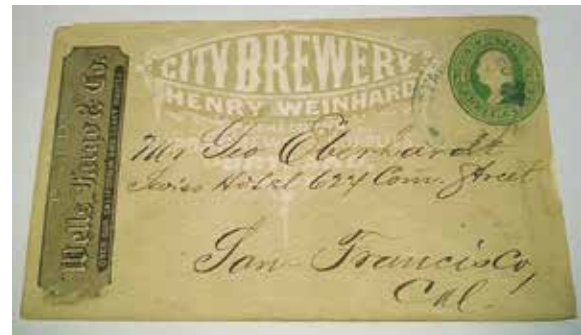 Wells, Fargo & Co.
CITY BREWERY
HENRY WEINHARD
Mr Geo Eberhardt
Swiss Hotel 624 Com. Street
San Francisco,
Cal.